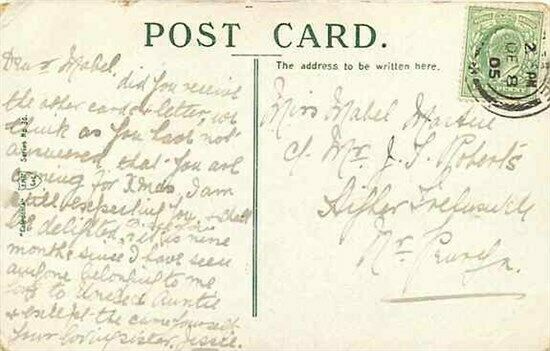 POST CARD.
The address to be written here.
2 PM
DE 8
05
Dear Mabel,
did you receive
the other card or letter, we
think as you have not
answered that you are
coming for Xmas, I am
still expecting you, shall
be delighted, it is nine
months since I have seen
anyone belonging to me
love to Uncle & Auntie
& except the same yourself
Your loving sister, Jessie.
Series No. 30.
Miss Mabel
c/o Mr. J. S. Roberts
Higher
Nr.